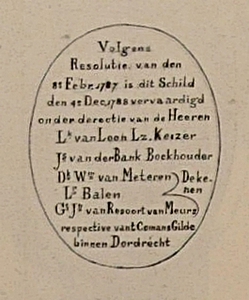 Volgens
Resolutie van den
8st Febr. 1787 is dit Schild
den 4st Dec. 1788 vervaardigd
onder derectie van de Heeren
Ls. van Loon Lz. Keizer
Js. van der Bank Boekhouder
Dk. Wm. van Meteren
Ls. Balen
Deke-
nen
Gt. Jn. van Resoort van Meurs
respective vant Comans Gilde
binnen Dordrecht